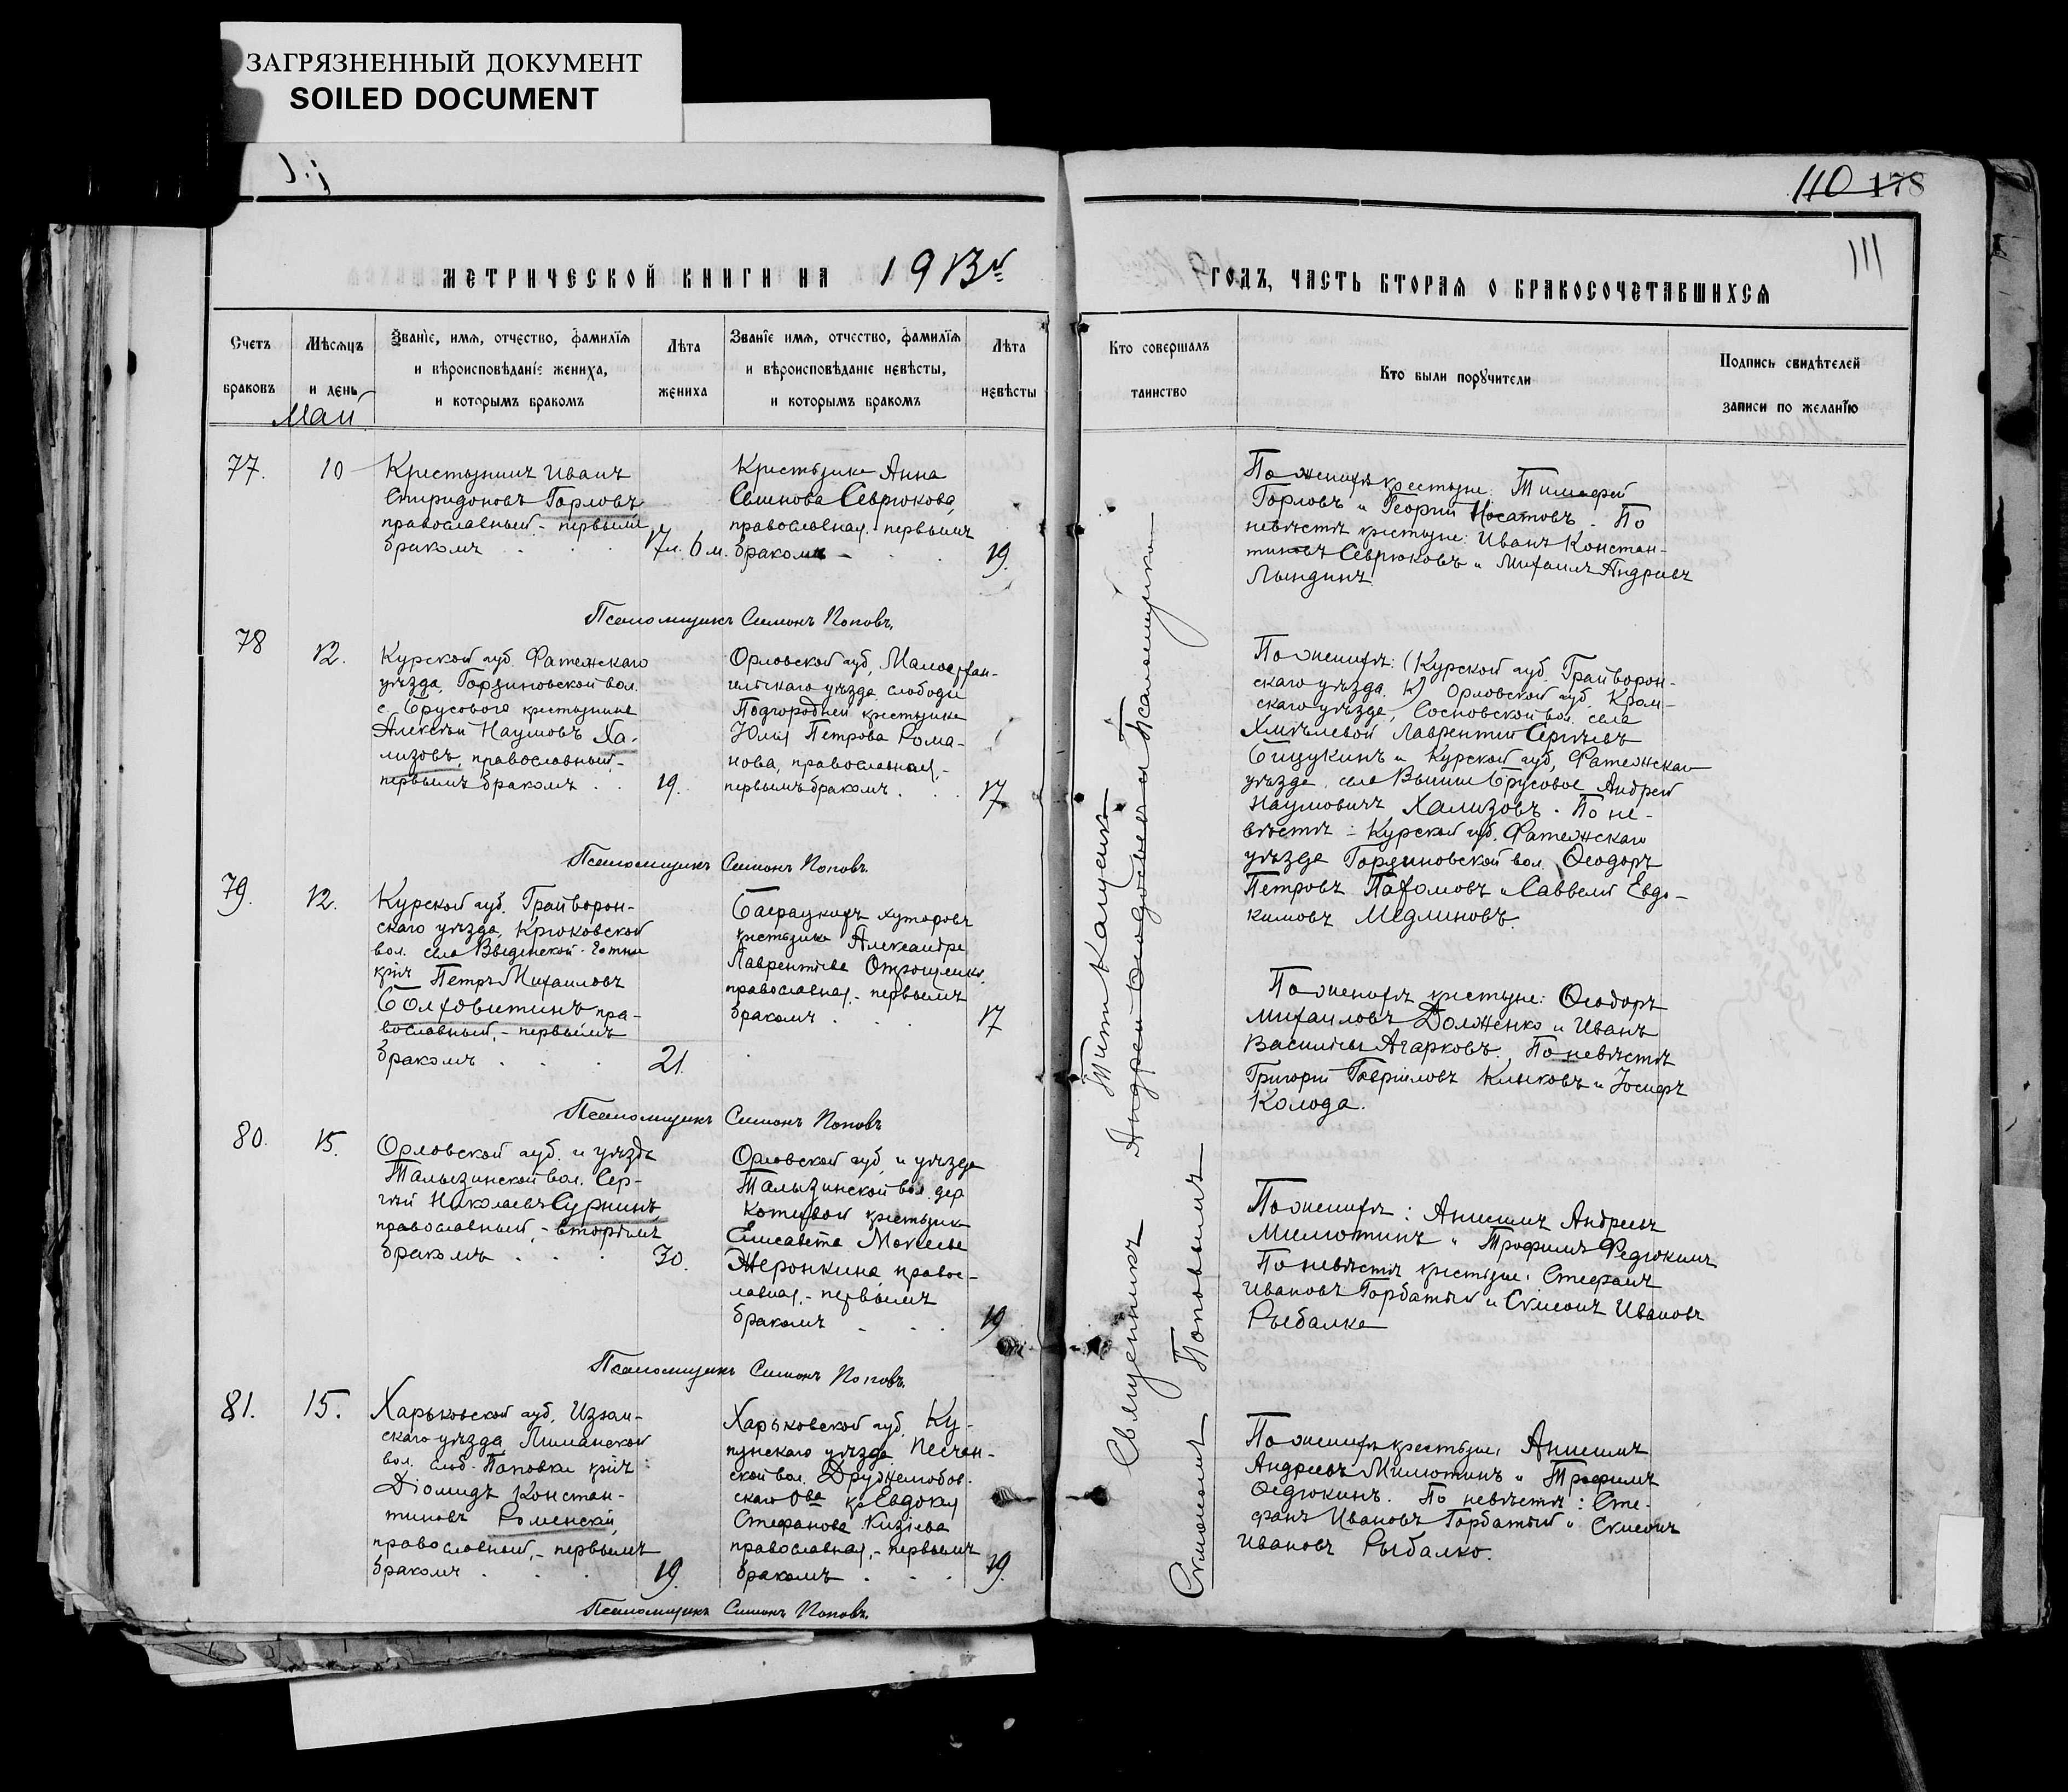 ЗАГРЯЗНЕННЫЙ ДОКУМЕНТ
SOILED DOCUMENT
110 178
111
МЕТРИЧЕСКОЙ КНИГИ НА 1913 г.
ГОДЪ, ЧАСТЬ ВТОРАЯ О БРАКОСОЧЕТАВШИХСЯ
Счетъ браковъ
Мѣсяцъ и день
Май
Званіе, имя, отчество, фамилія
и вѣроисповѣданіе жениха,
и которымъ бракомъ
Лѣта жениха
Званіе имя, отчество, фамилія
и вѣроисповѣданіе невѣсты,
и которымъ бракомъ
Лѣта невѣсты
Кто совершалъ таинство
Кто были поручители
Подпись свидѣтелей
записи по желанію
77.
10
Крестьянинъ Иванъ
Спиридоновъ Горловъ
православный - первымъ
бракомъ
17 л. 6 м.
Крестьянка Анна
Семенова Севрюкова,
православная первымъ
бракомъ
19.
По женихѣ крестьяне: Тимофей
Горловъ и Георгій Носатовъ. По
невѣстѣ крестьяне: Иванъ Констан-
тиновъ Севрюковъ и Михаилъ Андреевъ
Лындинъ.
Псаломщикъ Симонъ Поповъ.
78
12.
Курской губ. Фатежскаго
уѣзда,
с. Брусового крестьянинъ
Алексѣй Наумовъ Ха-
лизовъ, православный, -
первымъ бракомъ
19.
Орловской губ, Малоархан-
гельскаго уѣзда слободы
Подгородней крестьянка
Юлія Петрова Рома-
нова, православная, -
первымъ бракомъ
17
По женихѣ: (Курской губ. Грайворон-
скаго уѣзда. К) Орловской губ. Кром-
скаго уѣзда, Сосновской вол. села
Хмѣлевой Лаврентій Сергѣевъ
и Курской губ, Фатежскаго
уѣзда села Брусовое Андрей
Наумовичъ Хализовъ. По не-
вѣстѣ - Курской губ. Фатежскаго
уѣзда вол. Ѳеодоръ
Петровъ Пахомовъ и Савелій Евдо-
кимовъ Медлиновъ.
Псаломщикъ Симонъ Поповъ.
79.
12.
Курской губ. Грайворон-
скаго уѣзда, Крюковской
вол. села Введенской-Готни
кр-нъ Петръ Михаиловъ
Болховитинъ пра-
вославный, - первымъ
бракомъ
21.
хуторовъ
крестьянка Александра
Лаврентіева
православная, - первымъ
бракомъ
17
По женихѣ крестьяне: Ѳеодоръ
Михаиловъ Долженко и Иванъ
Васильевъ Агарковъ. По невѣстѣ
Григорій Гавріиловъ Клыковъ и Іосифъ
Колода.
Псаломщикъ Симонъ Поповъ
80.
15.
Орловской губ. и уѣзда
Талызинской вол. Сер-
гѣй Николаевъ Сурнинъ,
православный, - вторымъ
бракомъ
30.
Орловской губ, и уѣзда
Талызинской вол. дер
крестьянка
Елисавета Моисеева
Жеронкина, правос-
лавная, - первымъ
бракомъ
19
По женихѣ: Анисимъ Андреевъ
Милютинъ и Трофимъ Федюкинъ
По невѣстѣ крестьяне: Стефанъ
Ивановъ Горбатый и Симеонъ Ивановъ
Рыбалка
Псаломщикъ Симонъ Поповъ.
81.
15.
Харьковской губ. Изюм-
скаго уѣзда, Лиманской
вол. слоб. Поповки кр-нъ
Діомидъ Констан-
тиновъ Роменскій,
православный, - первымъ
бракомъ
19.
Харьковской губ. Ку-
пянскаго уѣзда. Песчан-
ской вол. Дружелюбов-
скаго О-ва кр Евдокія
Стефанова Кизіева
православная, - первымъ
бракомъ
19.
По женихѣ крестьяне: Анисимъ
Андреевъ Милютинъ и Трофимъ
Ѳедюкинъ. По невѣстѣ: Сте-
фанъ Ивановъ Горбатый и Симеонъ
Ивановъ Рыбалко.
Псаломщикъ Симонъ Поповъ.
Священникъ Титъ
Андрей и Псаломщикъ
Симонъ Поповъ